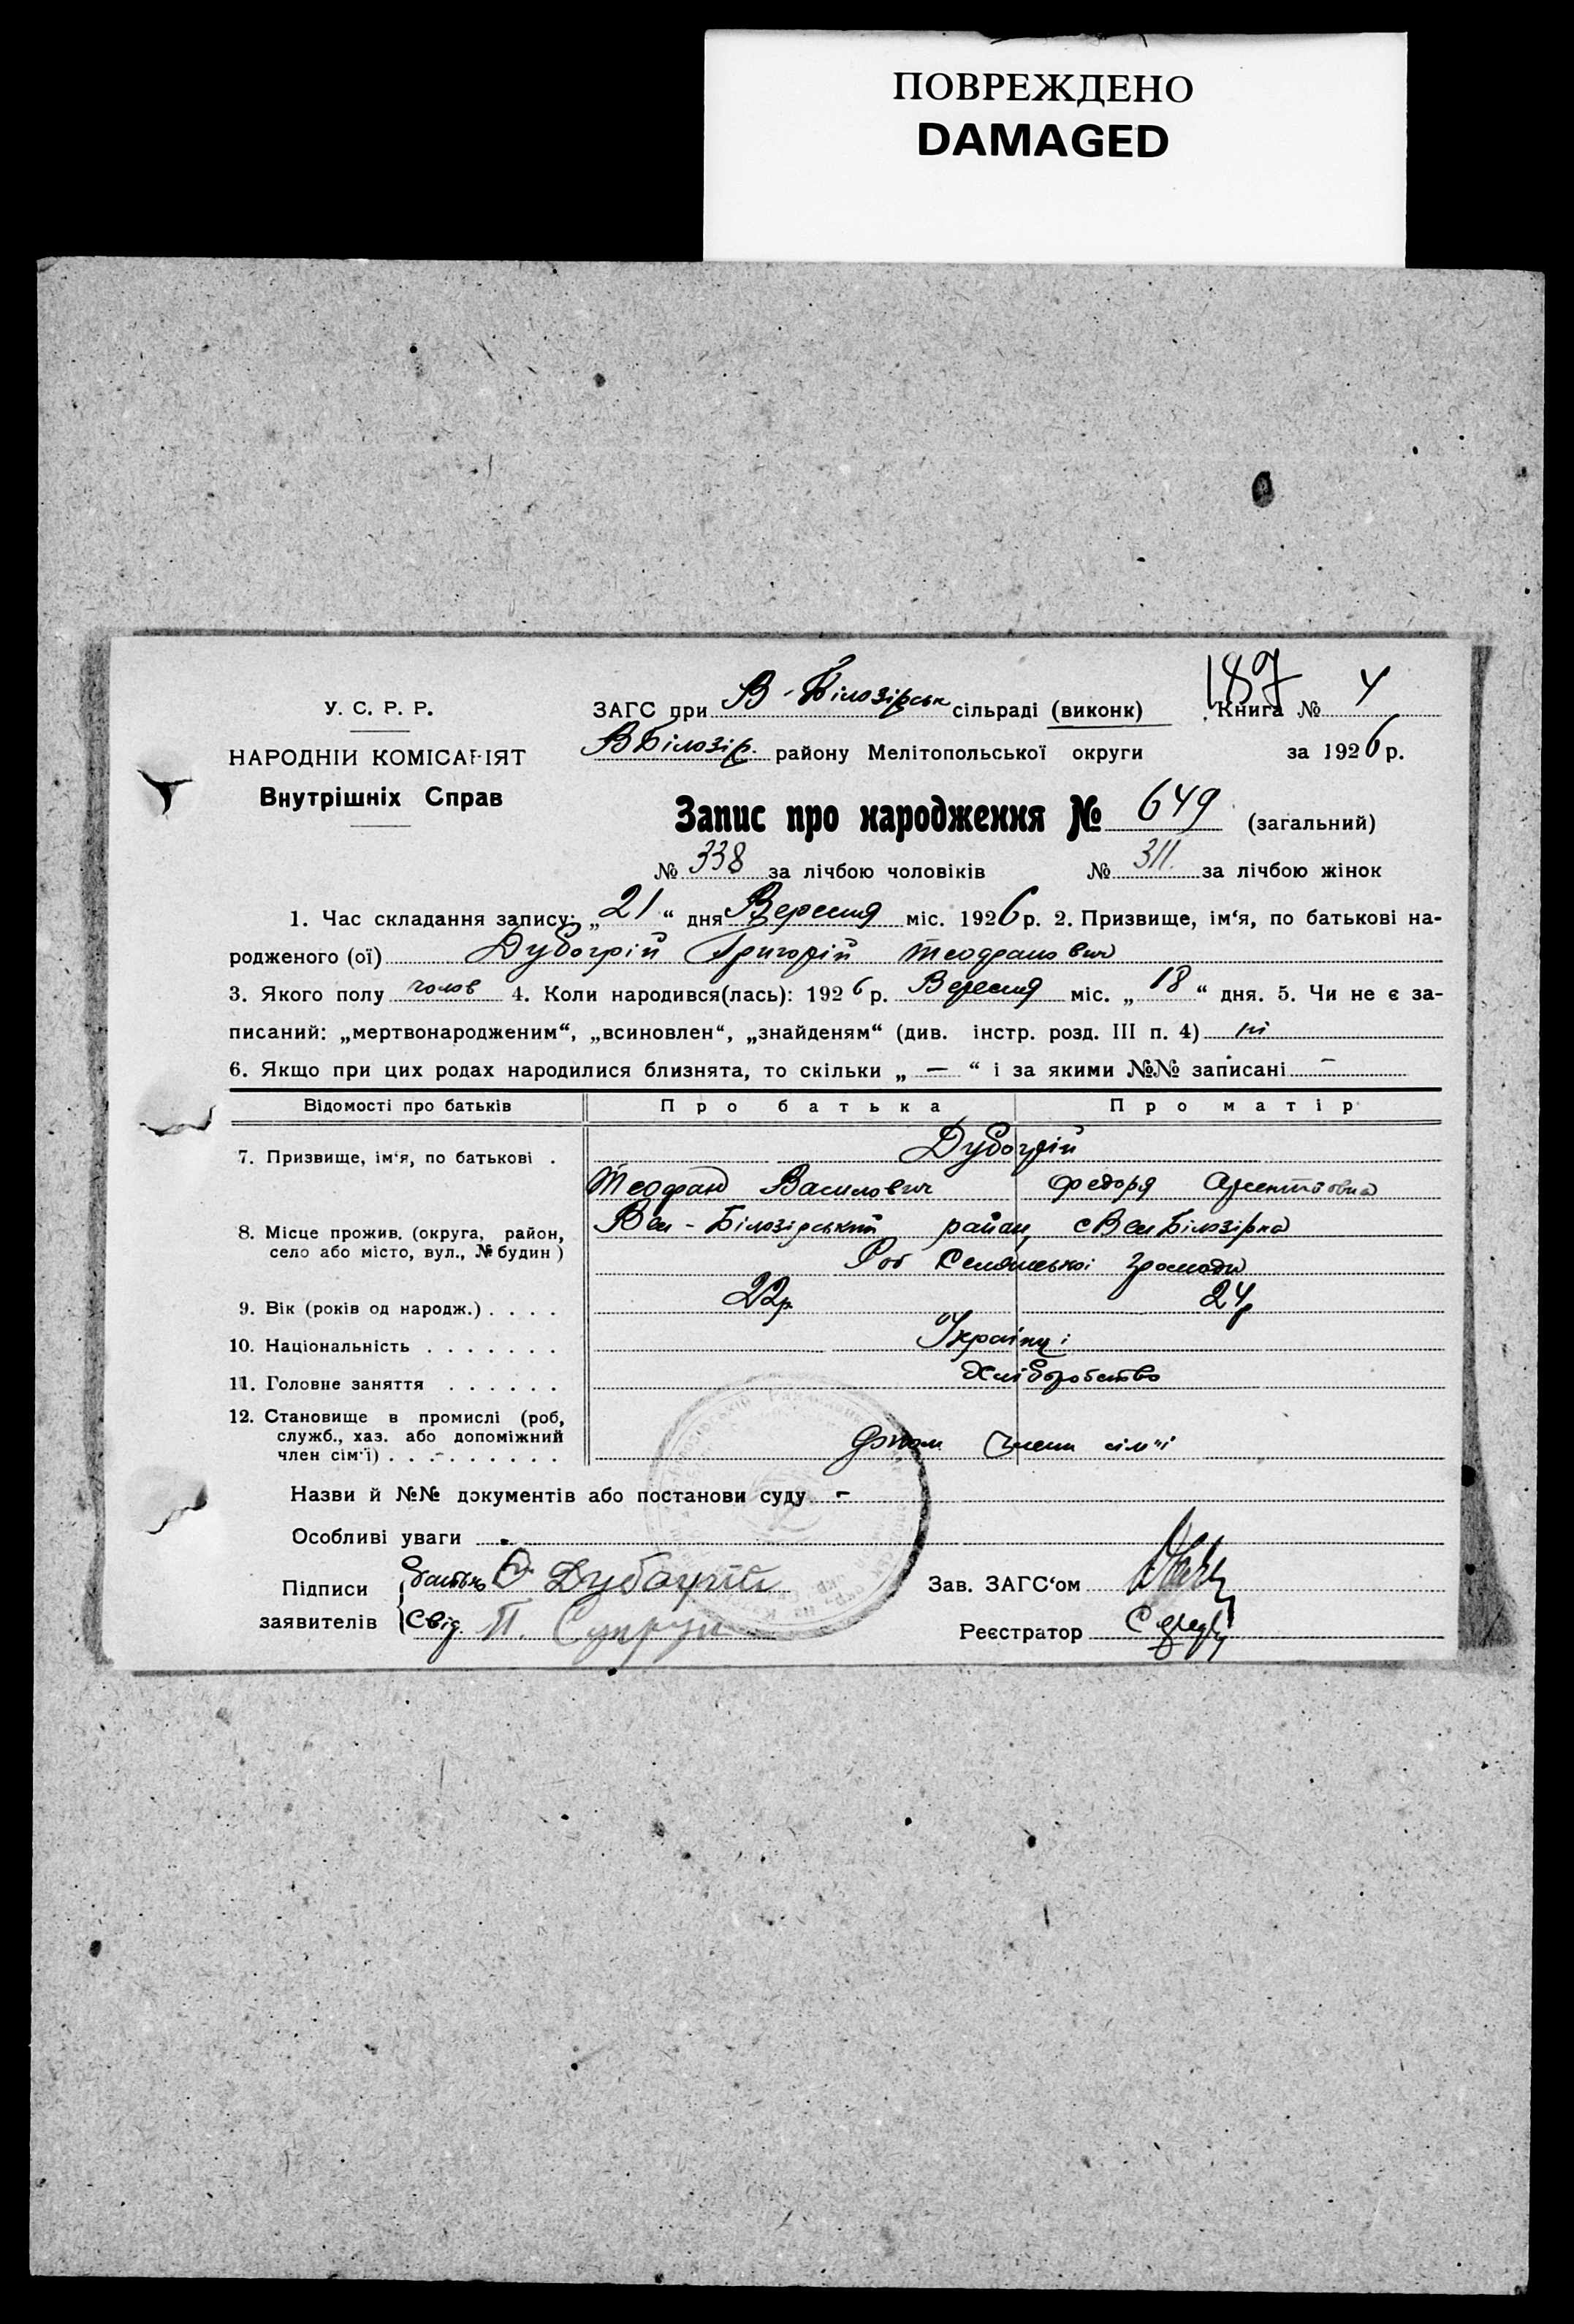 ПОВРЕЖДЕНО
DAMAGED
187
У. С. Р. Р.
ЗАГС при В-Білозірськ сільраді (виконк) Книга № 4
НАРОДНІЙ КОМІСАРІЯТ
Внутрішніх Справ
ВБілозір. району Мелітопольської округи за 1926 р.
Запис про народження № 649 (загальний)
№ 338 за лічбою чоловіків № 311. за лічбою жінок
1. Час складання запису: „21“ дня Вересня міс. 1926 р. 2. Призвище, ім‘я, по батькові на-
родженого (ої) Дубогрій Григорій Теофанович
3. Якого полу чолов 4. Коли народився(лась): 1926 р. Вересня міс. „18“ дня. 5. Чи не є за-
писаний: „мертвонародженим“, „всиновлен“, „знайденям“ (див. інстр. розд. III п. 4) ні
6. Якщо при цих родах народилися близнята, то скільки „ — “ і за якими №№ записані —
Відомості про батьків Про батька Про матір
7. Призвище, ім‘я, по батькові . Дубогрій
Теофан Василович Федоря Арентіовна
8. Місце прожив. (округа, район, село або місто, вул., № будин) Вел-Білозірський район, с Вел Білозірка
Селянської громади
9. Вік (років од народж.) . . . . 22р. 24р
10. Національність . . . . . . . Українці
11. Головне заняття . . . . . . Хліборобство
12. Становище в промислі (роб,
служб., хаз. або допоміжний
член сім‘ї) . . . . . . . . . Допом Члени сім"ї
Назви й №№ документів або постанови суду —
Особливі уваги
Підписи заявителів батько Дубогрій Зав. ЗАГС‘ом
Свід. П. Супрун Реєстратор